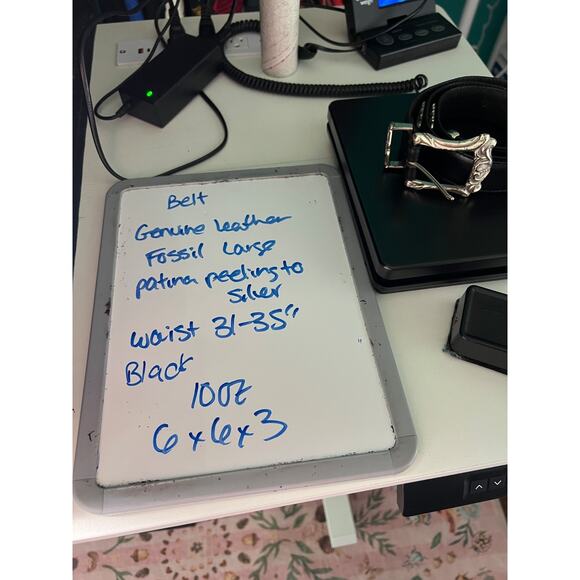 Belt
Genuine leather
Fossil Large
patina peeling to
Silver
waist 31-35"
Black
10oz
6x6x3